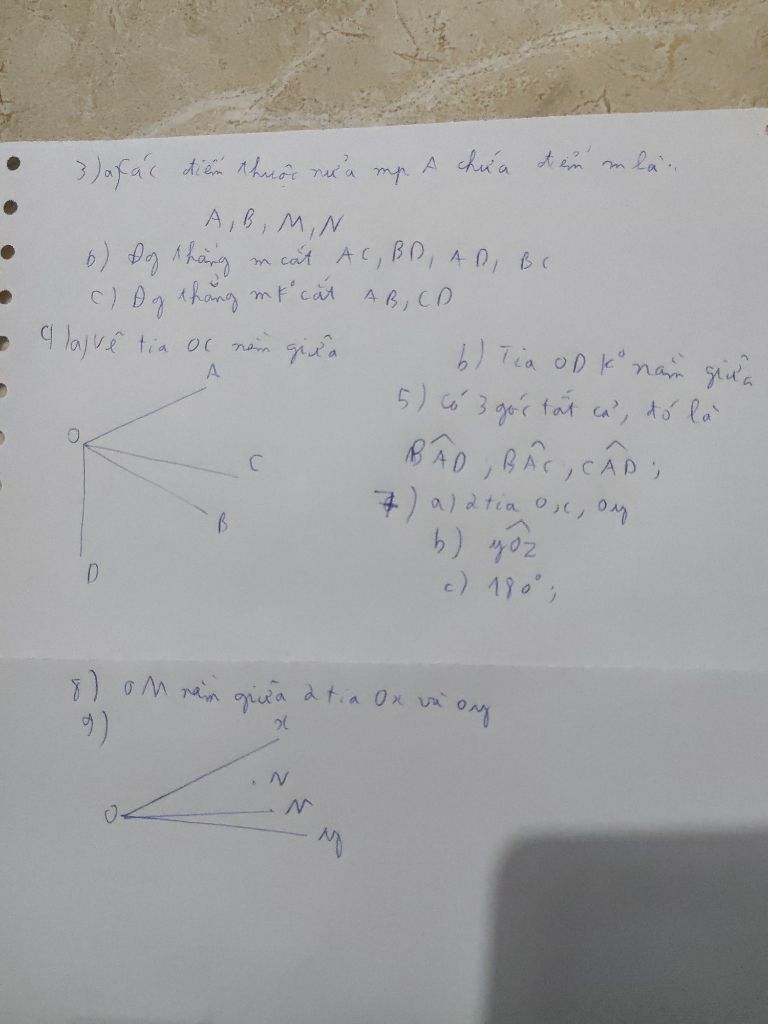 3) a) Các điểm thuộc nửa mp A chứa điểm m là..
A, B, M, N
b) Đg thẳng m cắt AC, BD, AD, BC
c) Đg thẳng m k° cắt AB, CD
4) a) Vẽ tia OC nằm giữa
A
O
C
B
D
b) Tia OD k° nằm giữa
5) Có 3 góc tất cả, đó là
BÂD ; BÂC, CÂD ;
7) a) 2 tia Ox, Oy
b) yÔz
c) 180° ;
8) OM nằm giữa 2 tia Ox và Oy
9)
x
. N
O
M
y